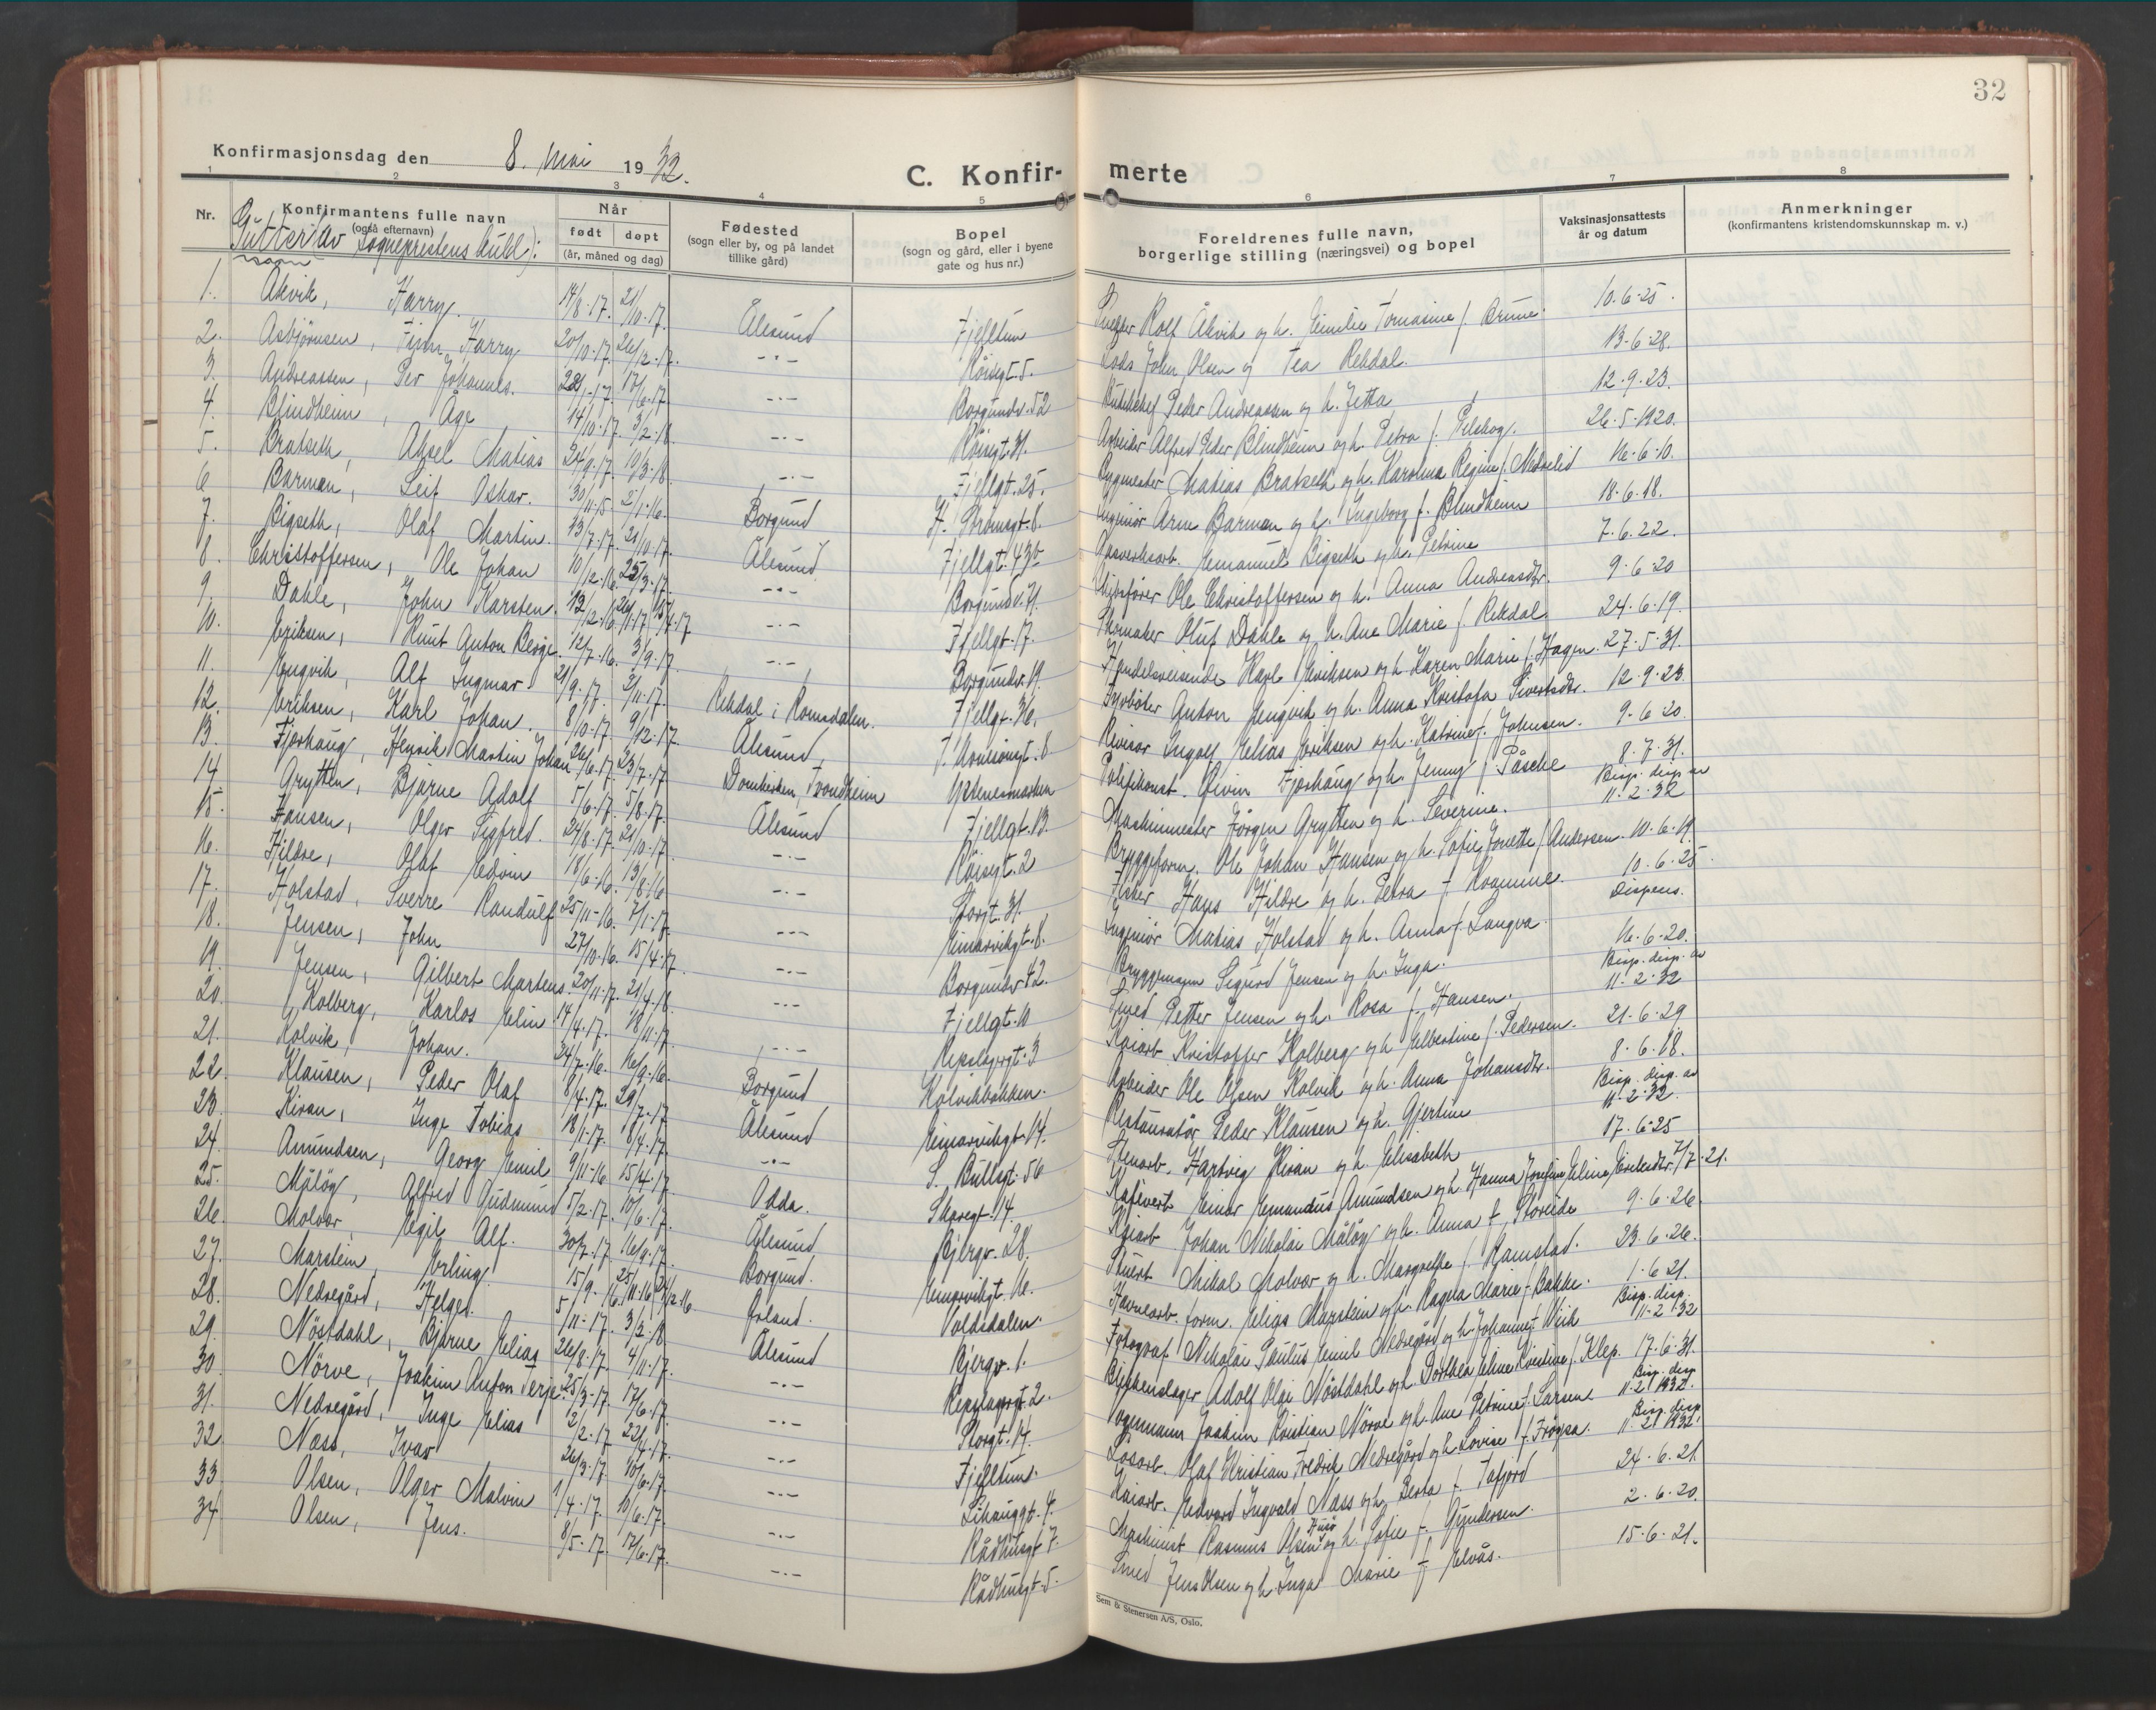 32
Konfirmasjonsdag den 8. Mai 1932.
C. Konfirmerte
1 2 3 4 5 6 7 8
Nr.
Konfirmantens fulle navn
(også efternavn)
Når
født døpt
(år, måned og dag)
Fødested
(sogn eller by, og på landet
tillike gård)
Bopel
(sogn og gård, eller i byene
gate og hus nr.)
Foreldrenes fulle navn,
borgerlige stilling (næringsvei) og bopel
Vaksinasjonsattests
år og datum
Anmerkninger
(konfirmantens kristendomskunnskap m. v.)
Gutter (Av Sogneprestens kuld):
1. Åkvik, Harry. 14/8-17. 21/10-17. Ålesund Fjelltun Rolf Åkvik og h. Emilie Tomasine f. Brune. 10-6-25.
2. Asbjørnsen, Finn Harry 20/10-17. 26/12-17. -"- Röisgt. 5. Lods John Olsen og Tea Rekdal. 13-6-28.
3. Andreassen, Per Johannes. 17/6-17 -"- Borgundv. 52 Peder Andreassen og h. Jetta 12-9-23.
4. Blindheim, Åge 14/10-17. 3/2-18. -"- Röisgt. 31. Arbeider Alfred Peder Blindheim og h. Petra f. 26-5-1920.
5. Bratseth, Aksel Matias 24/9-17. 10/3-18. -"- Fjellgt. 25. Byggmester Matias Bratseth og h. Karolina Regine f. Medvelid
6 Barman, Leif Oskar. 30/11-15. 2/1-16. Borgund St. Ingeniør Arne Barman og h. Ingeborg f. Blindheim 18-6-18.
7. Bigseth, Olaf Martin. 13/7-17. 21/10-17. Ålesund Fjellgt. 43b Gasverksarb. Emanuel Bigseth og h. Petrine 7-6-22.
8. Christoffersen, Ole Johan 10/12-16. 25/3-17. -"- Borgundv. 71. Skibsfører Ole Christoffersen og h. Anna Andreasdtr. 9-6-20
9. Dahle, John Karsten. -"- Fjellgt. 17. Skomaker Oluf Dahle og h. Ane Marie f. Rekdal. 24-6-19.
10. Eriksen, Knut Anton Berge. 12/7-16. 3/9-17. -"- Borgundv. 19. Handelsreisende Karl Eriksen og h. Karen Marie f. Hagen. 27-5-31.
11. Engvik, Alf Ingmar. 21/9-17. Rekdal i Romsdalen. Fjellgt. 36. Fyrbøter Anton Engvik og h. Anna Kristofa Sivertsdtr. 12-9-23.
12. Eriksen, Karl Johan. 8/10-17 9/12-17. Ålesund Revisor Ingolf Elias Eriksen og h. Katrine f. Johnsen. 9-6-20.
13. Fjørhaug, Henrik Martin Johan 26/6-17. 23/7-17 Domkirken, Trondheim Politikonst. Eivin Fjørhaug og h. Jenny f. Påsche 8-7-31.
14 Grytten, Bjarne Adolf 5/6-17. 5/8-17. Ålesund Fjellgt. 13. Maskinmester Jörgen Grytten og h. Severine. Bisp. disp. av 11-2-32
15. Hansen, Olger Sigfred. 24/8-17. 21/10-17. -"- Röisgt. 2 Bryggeform. Ole Johan Hansen og h. Sofie Jonette f. Andersen. 10-6-19.
16. Hildre, Olaf Edvin 18/6-16. 13/8-16 -"- Storgt. 31. Fisker Hans Hildre og h. Petra f. Kvamme. 10-6-25.
17. Holstad, Sverre Randulf 25/11-16. 7/1-17. -"- Einarvikgt. 8. Ingeniør Matias Holstad og h. Anna f. Langva. Dispens.
18. Jensen, John 27/10-16. 15/4-17. -"- Borgundv. 42. Bryggemann Sigurd Jensen og h. Inga. 16-6-20.
19. Jensen, Gilbert Martens. 20/11-17. 21/4-18. -"- Fjellgt. 10 Smed Petter Jensen og h. Rosa f. Hansen. Bisp. disp. av 11-2-32
20. Kolberg, Karlos Elin 14/4-17. 18/11-17. -"- Repslagergt. 3 Kaiarb. Kristoffer Kolberg og h. Elbertine f. Pedersen. 21-6-29
21. Kolvik, Johan. 24/7-16. 16/9-16. Borgund Kolvikbakken. Arbeider Ole Olsen Kolvik og h. Anna Johansdtr. 8-6-18.
22. Klausen, Peder Olaf 8/4-17. 29/7-17 Ålesund Einarvikgt. 14. Restauratör Peder Klausen og h. Gjertine Bisp. disp. av 11-2-32.
23. Kiran, Inge Tobias 18/1-17. 8/4-17. -"- S. Bullsgt. 56 Hartvig Kiran og h. Elisabeth 17-6-25
24. Amundsen, Georg Emil 9/11-16 15/4-17. Odda. Skaregt. 14. Kafévert Einar Emandus Amundsen og h. Hanna Josefine Elina Eriksdtr. 7/7-21.
25. Måløy, Alfred Gudmund 5/2-17. 10/6-17. Ålesund Bjergv. 28. Kaiarb. Johan Nikolai Måløy og h. Anna f. 9-6-26.
26. Molvær, Egil Alf. 30/7-17. 16/9-17. Borgund. Einarvikgt. 16. Stuert Mikal Molvær og h. Margrethe f. Ramstad. 23-6-26.
27. Marstein, Erling. 15/9-16. Voldsdalen. Havnearb. form. Elias Marstein og h. Ragna Marie f. Bakke. 1-6-21.
28. Nedregård, Helge. 5/11-17. 3/2-18 Ålesund Bjergv. 1. Fotograf Nikolai Paulus Emil Nedregård og h. Johanne f. Wiik Bisp. disp. 11-2-32
29. Nöstdahl, Bjarne Elias 26/8-17. 4/11-17. -"- Repslagergt. 2. Blikkenslager Adolf Olai Nöstdahl og h. Dorthea Eline Kristine f. Klep. 17-6-31.
30. Nörve, Joakim Anton Terje. 25/3-17. 17/6-17. -"- Storgt. 14. Vognmann Joakim Kristian Nörve og h. Ane Petrine f. Larsen Bisp. disp. 11-2-1932.
31. Nedregård, Inge Elias 2/2-17. 22/4-17. -"- Fjelltun. Løsarb. Olaf Kristian Fredrik Nedregård og h. Lovise f. Bisp. disp. 11-2-1932.
32. Nass, Ivar 26/3-17. 10/6-17. -"- Lihauggt. 4. Kaiarb. Edvard Ingvald Nass og h. Berta f. Tafjord 24-6-21.
33. Olsen, Olger Malvin 1/4-17. 10/6-17. -"- Rådhusgt. 7. Maskinist Rasmus Olsen og h. Sofie f. Gundersen. 2-6-20.
34. Olsen, Jens. 8/5-17. 17/6-17. -"- Rådhusgt. 5. Smed Jens Olsen og h. Inga Marie f. Elvås. 15-6-21.
Sem & Stenersen A/S, Oslo.